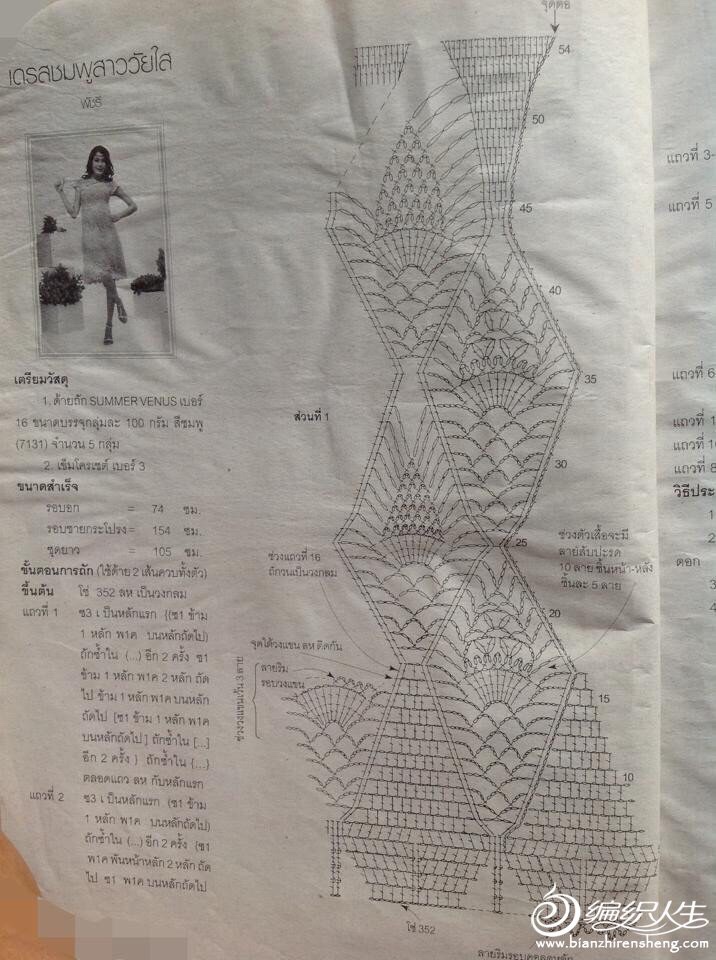 เดรสชมพูสาววัยใส
พัชรี
เตรียมวัสดุ
1. ด้ายถัก SUMMER VENUS เบอร์
16 ขนาดบรรจุกลุ่มละ 100 กรัม สีชมพู
(7131) จำนวน 5 กลุ่ม
2. เข็มโครเชต์ เบอร์ 3
ขนาดสำเร็จ
รอบอก = 74 ซม.
รอบชายกระโปรง = 154 ซม.
ชุดยาว = 105 ซม.
ขั้นตอนการถัก (ใช้ด้าย 2 เส้นควบทั้งตัว)
ขึ้นต้น โซ่ 352 ลห เป็นวงกลม
แถวที่ 1 ซ3 เป็นหลักแรก {(ซ1 ข้าม
1 หลัก พ1ค บนหลักถัดไป)
ถักซ้ำใน (...) อีก 2 ครั้ง ซ1
ข้าม 1 หลัก พ1ค 2 หลัก ถัด
ไป ข้าม 1 หลัก พ1ค บนหลัก
ถัดไป [ซ1 ข้าม 1 หลัก พ1ค
บนหลักถัดไป] ถักซ้ำใน [...]
อีก 2 ครั้ง } ถักซ้ำใน {...}
ตลอดแถว ลห กับหลักแรก
แถวที่ 2 ซ3 เป็นหลักแรก (ซ1 ข้าม
1 หลัก พ1ค บนหลักถัดไป)
ถักซ้ำใน (...) อีก 2 ครั้ง {ซ1
พ1ค พันหน้าหลัก 2 หลัก ถัด
ไป ซ1 พ1ค บนหลักถัดไป
จุดต่อ
54
50
45
40
35
ส่วนที่ 1
30
25
ช่วงแถวที่ 16
ถักวนเป็นวงกลม
ช่วงตัวเสื้อจะมี
ลายสับปะรด
10 ลาย ชิ้นหน้า-หลัง
ชิ้นละ 5 ลาย
20
จุดใต้วงแขน ลห ติดกัน
ลายริม
รอบวงแขน
ช่วงวงแขนเว้น 3 ลาย
15
10
โซ่ 352
ลายริมรอบคอ
แถวที่ 3-
แถวที่ 5
แถวที่ 6
แถวที่ 1
แถวที่ 1
แถวที่ 8
วิธีประ
1
2
ดอก
编织人生
www.bianzhirensheng.com